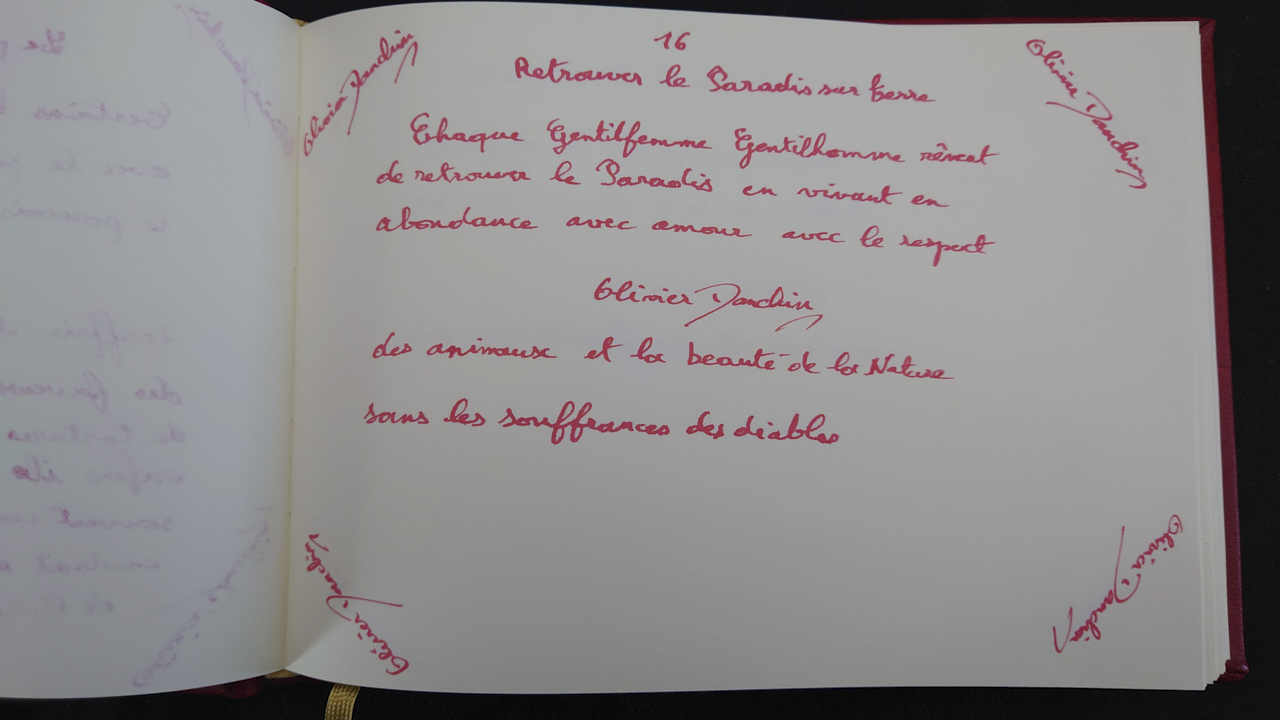 16
Retrouver le Paradis sur terre
Chaque Gentilfemme Gentilhomme rêvent
de retrouver le Paradis en vivant en
abondance avec amour avec le respect
Olivier Danchin
des animaux et la beauté de la Nature
sans les souffrances des diables
Olivier Danchin
Olivier Danchin
Olivier Danchin
Olivier Danchin